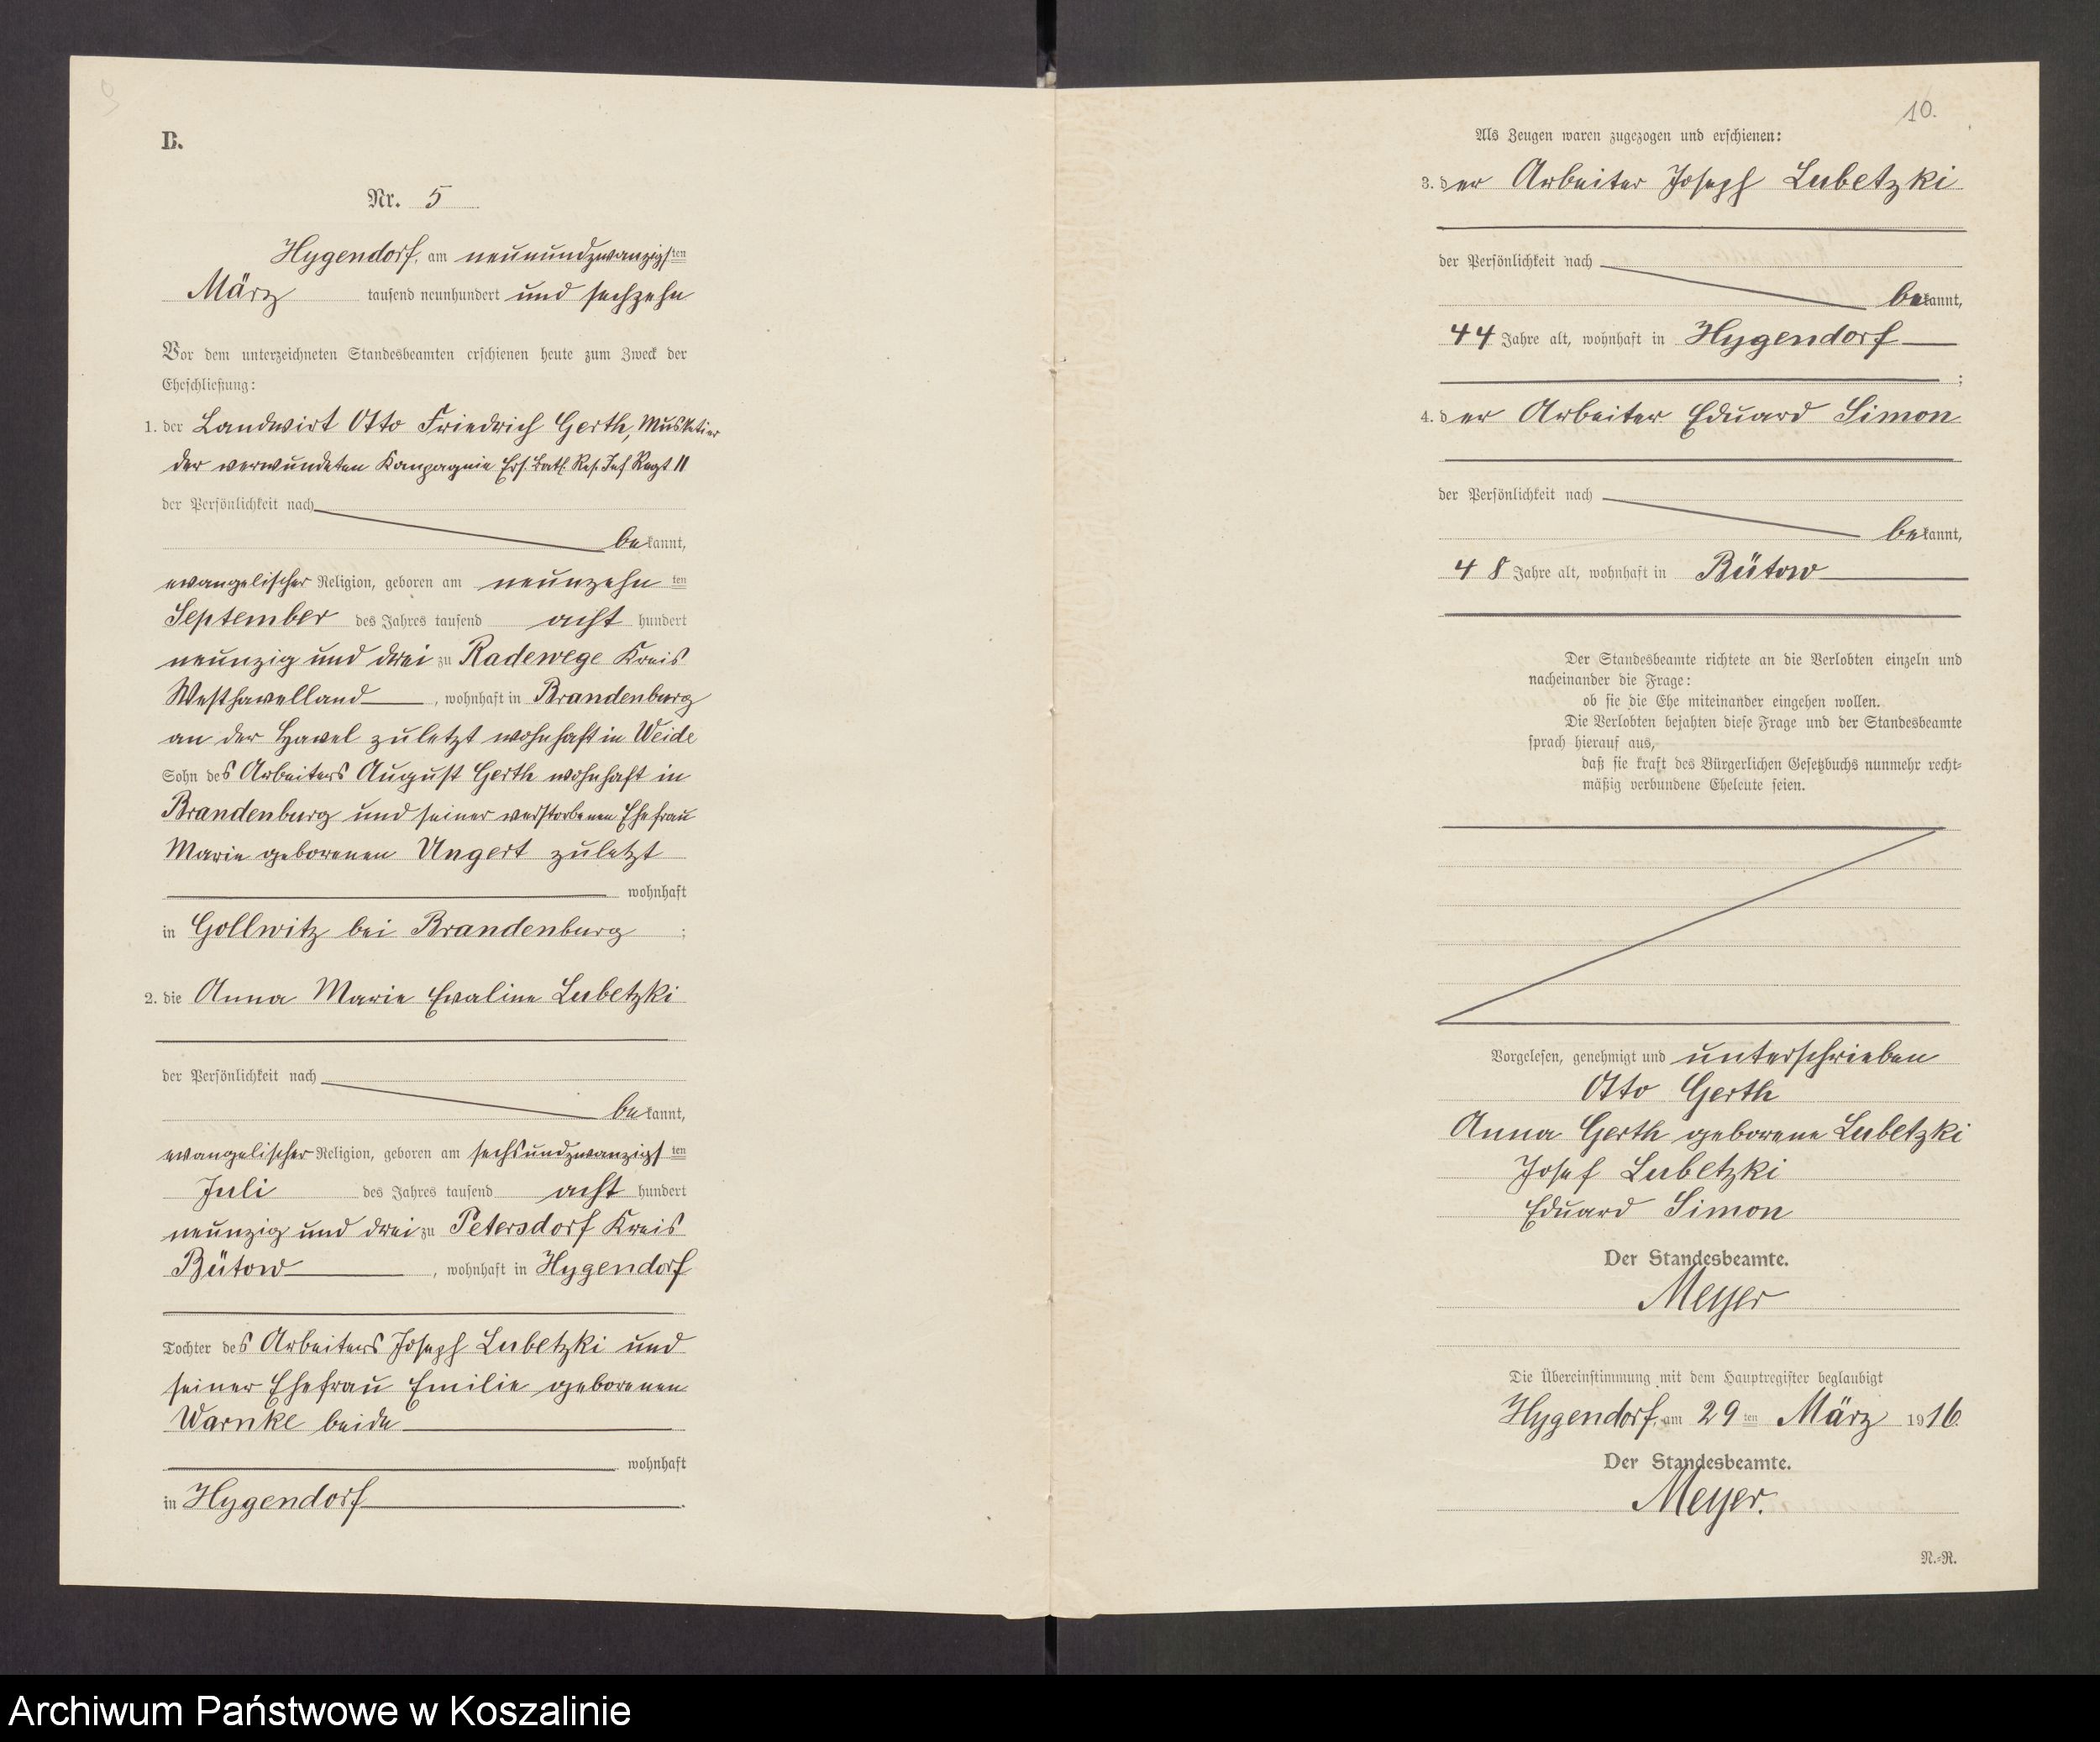 9
B.
Nr. 5
Hygendorf, am neunundzwanzigsten
März tausend neunhundert und sechzehn
Vor dem unterzeichneten Standesbeamten erschienen heute zum Zweck der
Eheschließung:
1. der Landwirt Otto Friedrich Gerth, Musketier
der verwundeten Kompagnie Ers. Batl. Res. Inf Regt 11
der Persönlichkeit nach
bekannt,
evangelischer Religion, geboren am neunzehn ten
September des Jahres tausend acht hundert
neunzig und drei zu Radewege Kreis
Westhavelland, wohnhaft in Brandenburg
an der Havel zuletzt wohnhaft in Weide
Sohn des Arbeiters August Gerth wohnhaft in
Brandenburg und seiner verstorbenen Ehefrau
Marie geborenen Ungert zuletzt
wohnhaft
in Gollwitz bei Brandenburg ;
2. die Anna Marie Evaline Lubetzki
der Persönlichkeit nach
bekannt,
evangelischer Religion, geboren am sechsundzwanzigsten
Juli des Jahres tausend acht hundert
neunzig und drei zu Petersdorf Kreis
Bütow, wohnhaft in Hygendorf
Tochter des Arbeiters Joseph Lubetzki und
seiner Ehefrau Emilie geborenen
Warnke beide
wohnhaft
in Hygendorf.
10.
Als Zeugen waren zugezogen und erschienen:
3. der Arbeiter Joseph Lubetzki
der Persönlichkeit nach
bekannt,
44 Jahre alt, wohnhaft in Hygendorf
;
4. der Arbeiter Eduard Simon
der Persönlichkeit nach
bekannt,
48 Jahre alt, wohnhaft in Bütow
Der Standesbeamte richtete an die Verlobten einzeln und
nacheinander die Frage:
ob sie die Ehe miteinander eingehen wollen.
Die Verlobten bejahten diese Frage und der Standesbeamte
sprach hierauf aus,
daß sie kraft des Bürgerlichen Gesetzbuchs nunmehr recht-
mäßig verbundene Eheleute seien.
Vorgelesen, genehmigt und unterschrieben
Otto Gerth
Anna Gerth geborene Lubetzki
Josef Lubetzki
Eduard Simon
Der Standesbeamte.
Meyer
Die Übereinstimmung mit dem Hauptregister beglaubigt
Hygendorf, am 29 ten März 1916.
Der Standesbeamte.
Meyer.
N.-R.
Archiwum Państwowe w Koszalinie